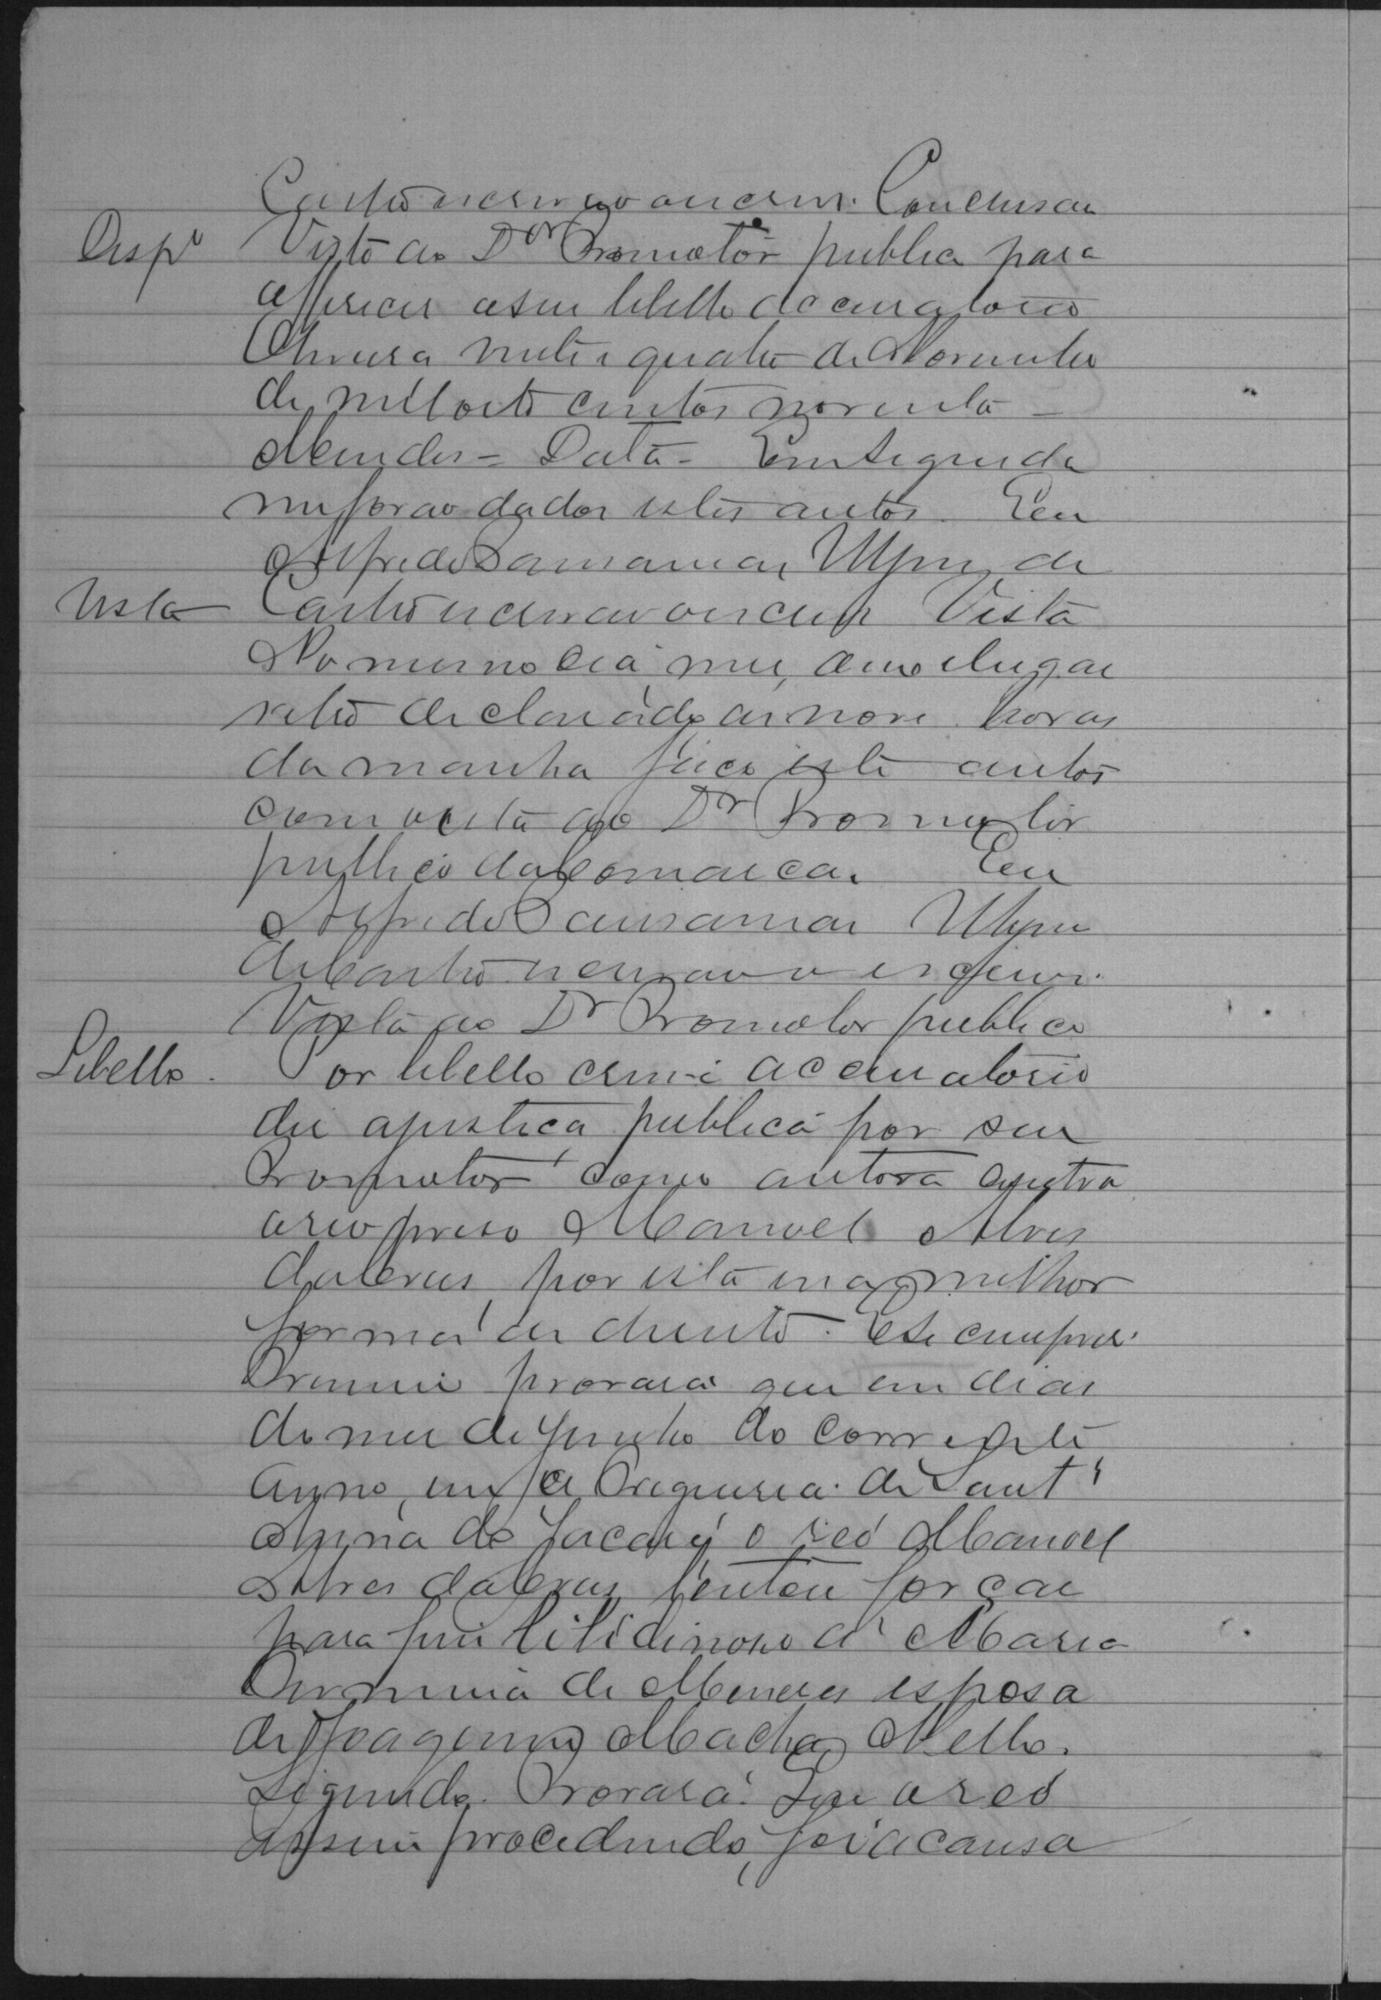 Castro escrivão o escrevi. Conclusão
Desp.º Visto ao Dor Promotor publico para
offerecer o seu libello accusatorio
vinte e quatro de Novembro
de mil oito centos noventa —
Mendes = Data = Em seguida
me forão dados estes autos. Eu
Alfredo de
Vista Castro escrivão o escrevi Vista
No mesmo dia, mez, anno e lugar
retro declarado as nove horas
da manha faço estes autos
com vista ao Dr Promotor
publico da Comarca. Eu
Alfredo
de Castro escrivão o escrevi.
Vista ao Dr Promotor publico
Libello. Por libello crime accusatorio
diz a justiça publica por seu
Promotor como autora contra
o reo preso Manoel Alves
da Cruz, por esta e na melhor
forma de direito. E se cumprir.
Primeiro provará que em dias
do mez de Junho do corrente
anno, em a Freguesia de Sant'
Anna do Jacaré o réo Manoel
Alves da Cruz tentou forçar
para fim libidinoso a' Maria
de Menezes esposa
de Joaquim Machado Mello.
Segundo. Provará. Que o reó
assim procedendo, foi a causa